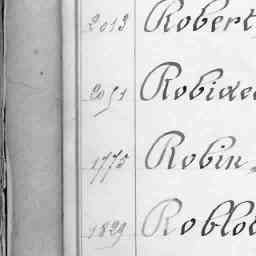 2013 Robert,
2051 Robidea
1775 Robin,
1829 Roblo